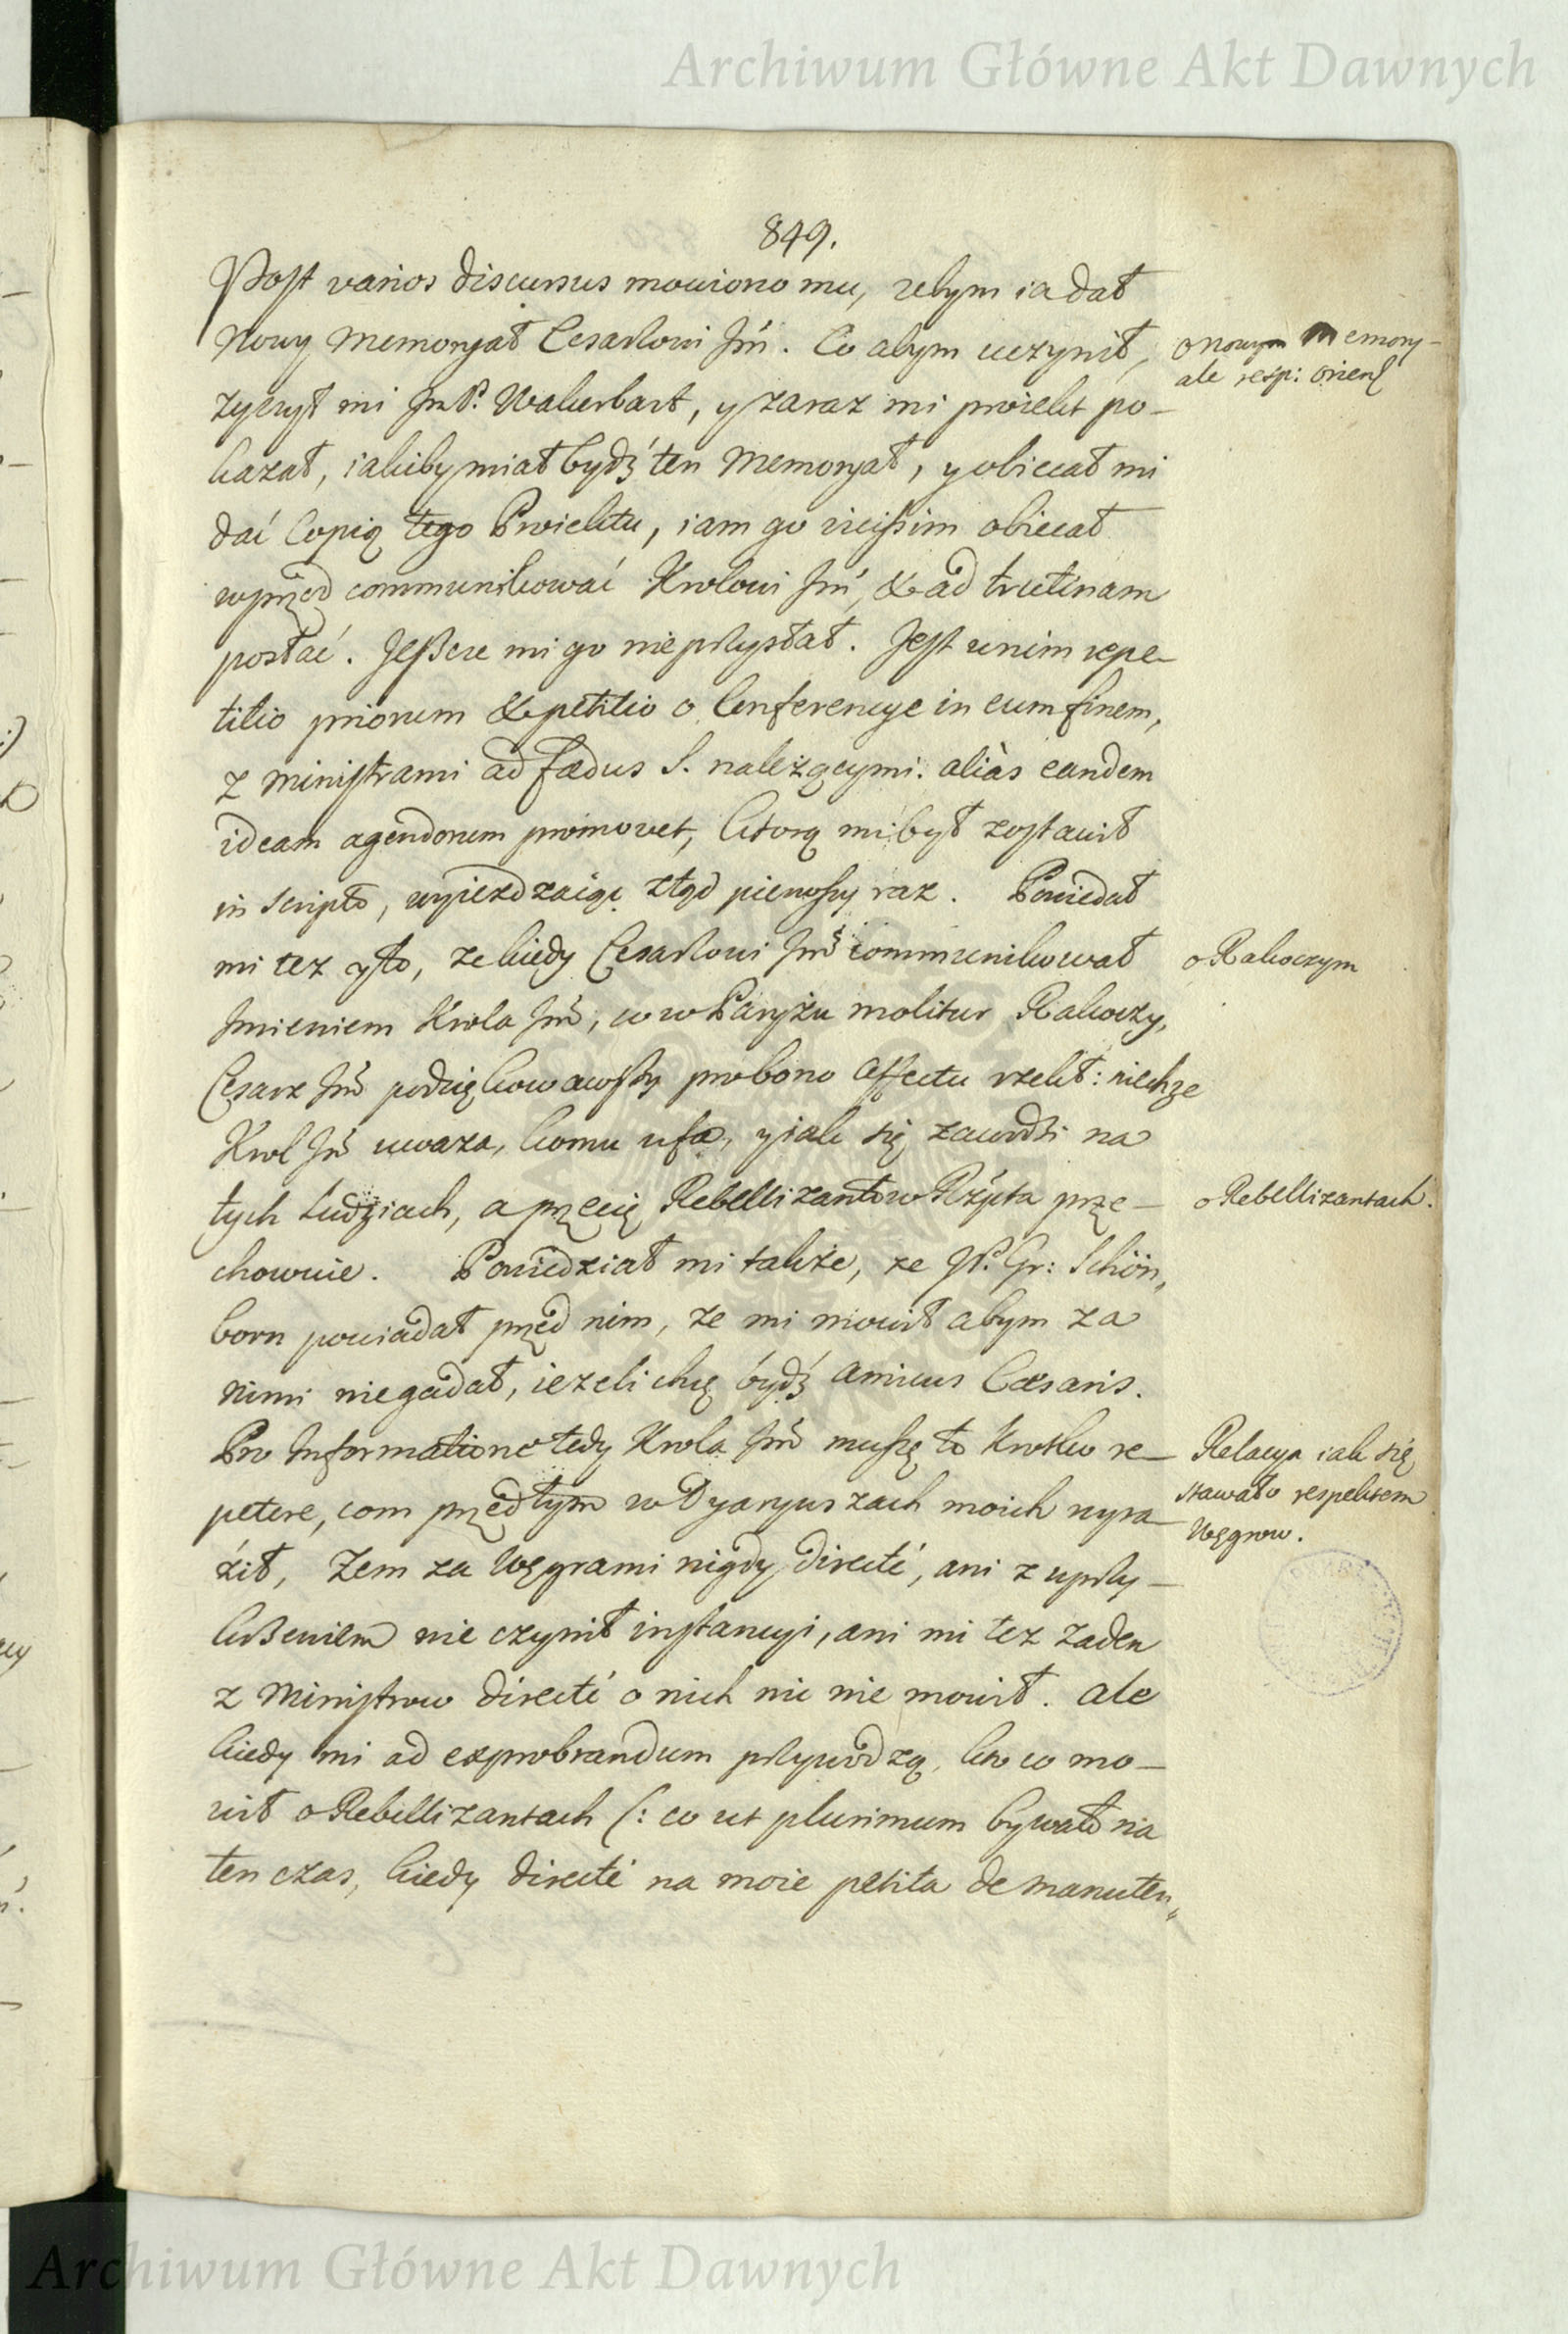 Archiwum Główne Akt Dawnych
849.
Post varios discursus mowiono mu, zebym ia dał
Nowy Memoryał Cesarzowi Jmć. Co abym uczynił,
o nowym Memory-
ale resp: orient
zyczył mi JmP. Wakerbart, y zaraz mi proiekt po-
kazał, iakiby miał bydź ten Memoryał, y obiecał mi
dać Copię tego Proiektu, iam go vicissim obiecał
wprzod communikować Krolowi Jmć, & ad trutinam
posłać. Jeszcze mi go nie przysłał. Jest w nim repe-
titio priorum & petitio o Conferencye in eum finem,
z Ministrami ad fædus S. nalezącymi. aliàs eandem
ideam agendorum promovet, ktorą mi był zostawił
in scripto, wyiezdzaiąc ztąd pierwszy raz. Powiedał
mi tez y to, ze kiedy Cesarzowi Jmć communikował
o Rakoczym
Jmieniem Krola Jmć, co w Paryżu molitur Rakoczy,
Cesarz Jmć podziękowawszy pro bono affectu rzekł: niechże
Krol Jmć uwaza, komu ufa, y iak się zawodzi na
tych Ludziach, a przecię Rebellizantow Rzpta prze-
o Rebellizantach.
chowuie. Powiedział mi także, ze JP. Gr: Schön,,
born powiadał przed nim, ze mi mowił abym za
nimi nie gadał, iezeli chcę bydź amicus Cæsaris.
Pro Informatione tedy Krola Jmć muszę to krotko re-
Relacya iak się
stawało respektem
Węgrow.
petere, com przedtym w Dyaryuszach moich wyra-
źił, Zem za Węgrami nigdy directé, ani z uprzy-
krzeniem nie czynił instancyi, ani mi tez zaden
z Ministrow directé o nich nic nie mowił. ale
kiedy mi ad exprobrandum przywodzą, kto co mo-
wił o Rebellizantach (: co ut plurimum bywało na
ten czas, kiedy directé na moie petita de manuten,,
Archiwum Główne Akt Dawnych